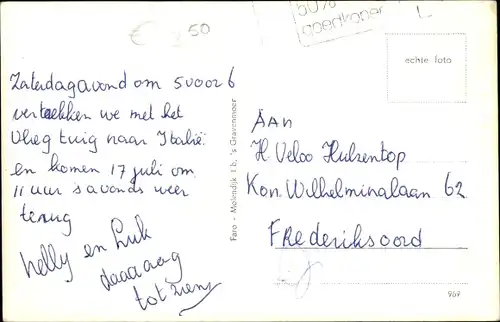 € 2 50
50%
goedkoper
echte foto
Zaterdagavond om 5 voor 6
vertrekken we met het
vlieg tuig naar Italië
en komen 17 juli om
11 uur s avonds weer
terug
Nelly en Luk
daaaaag
tot ziens
Faro - Molendijk 1 b, 's Gravenmoer
AAN
H. Veloo Hulzentop
Kon. Wilhelminalaan 62
FRederiksoord
969